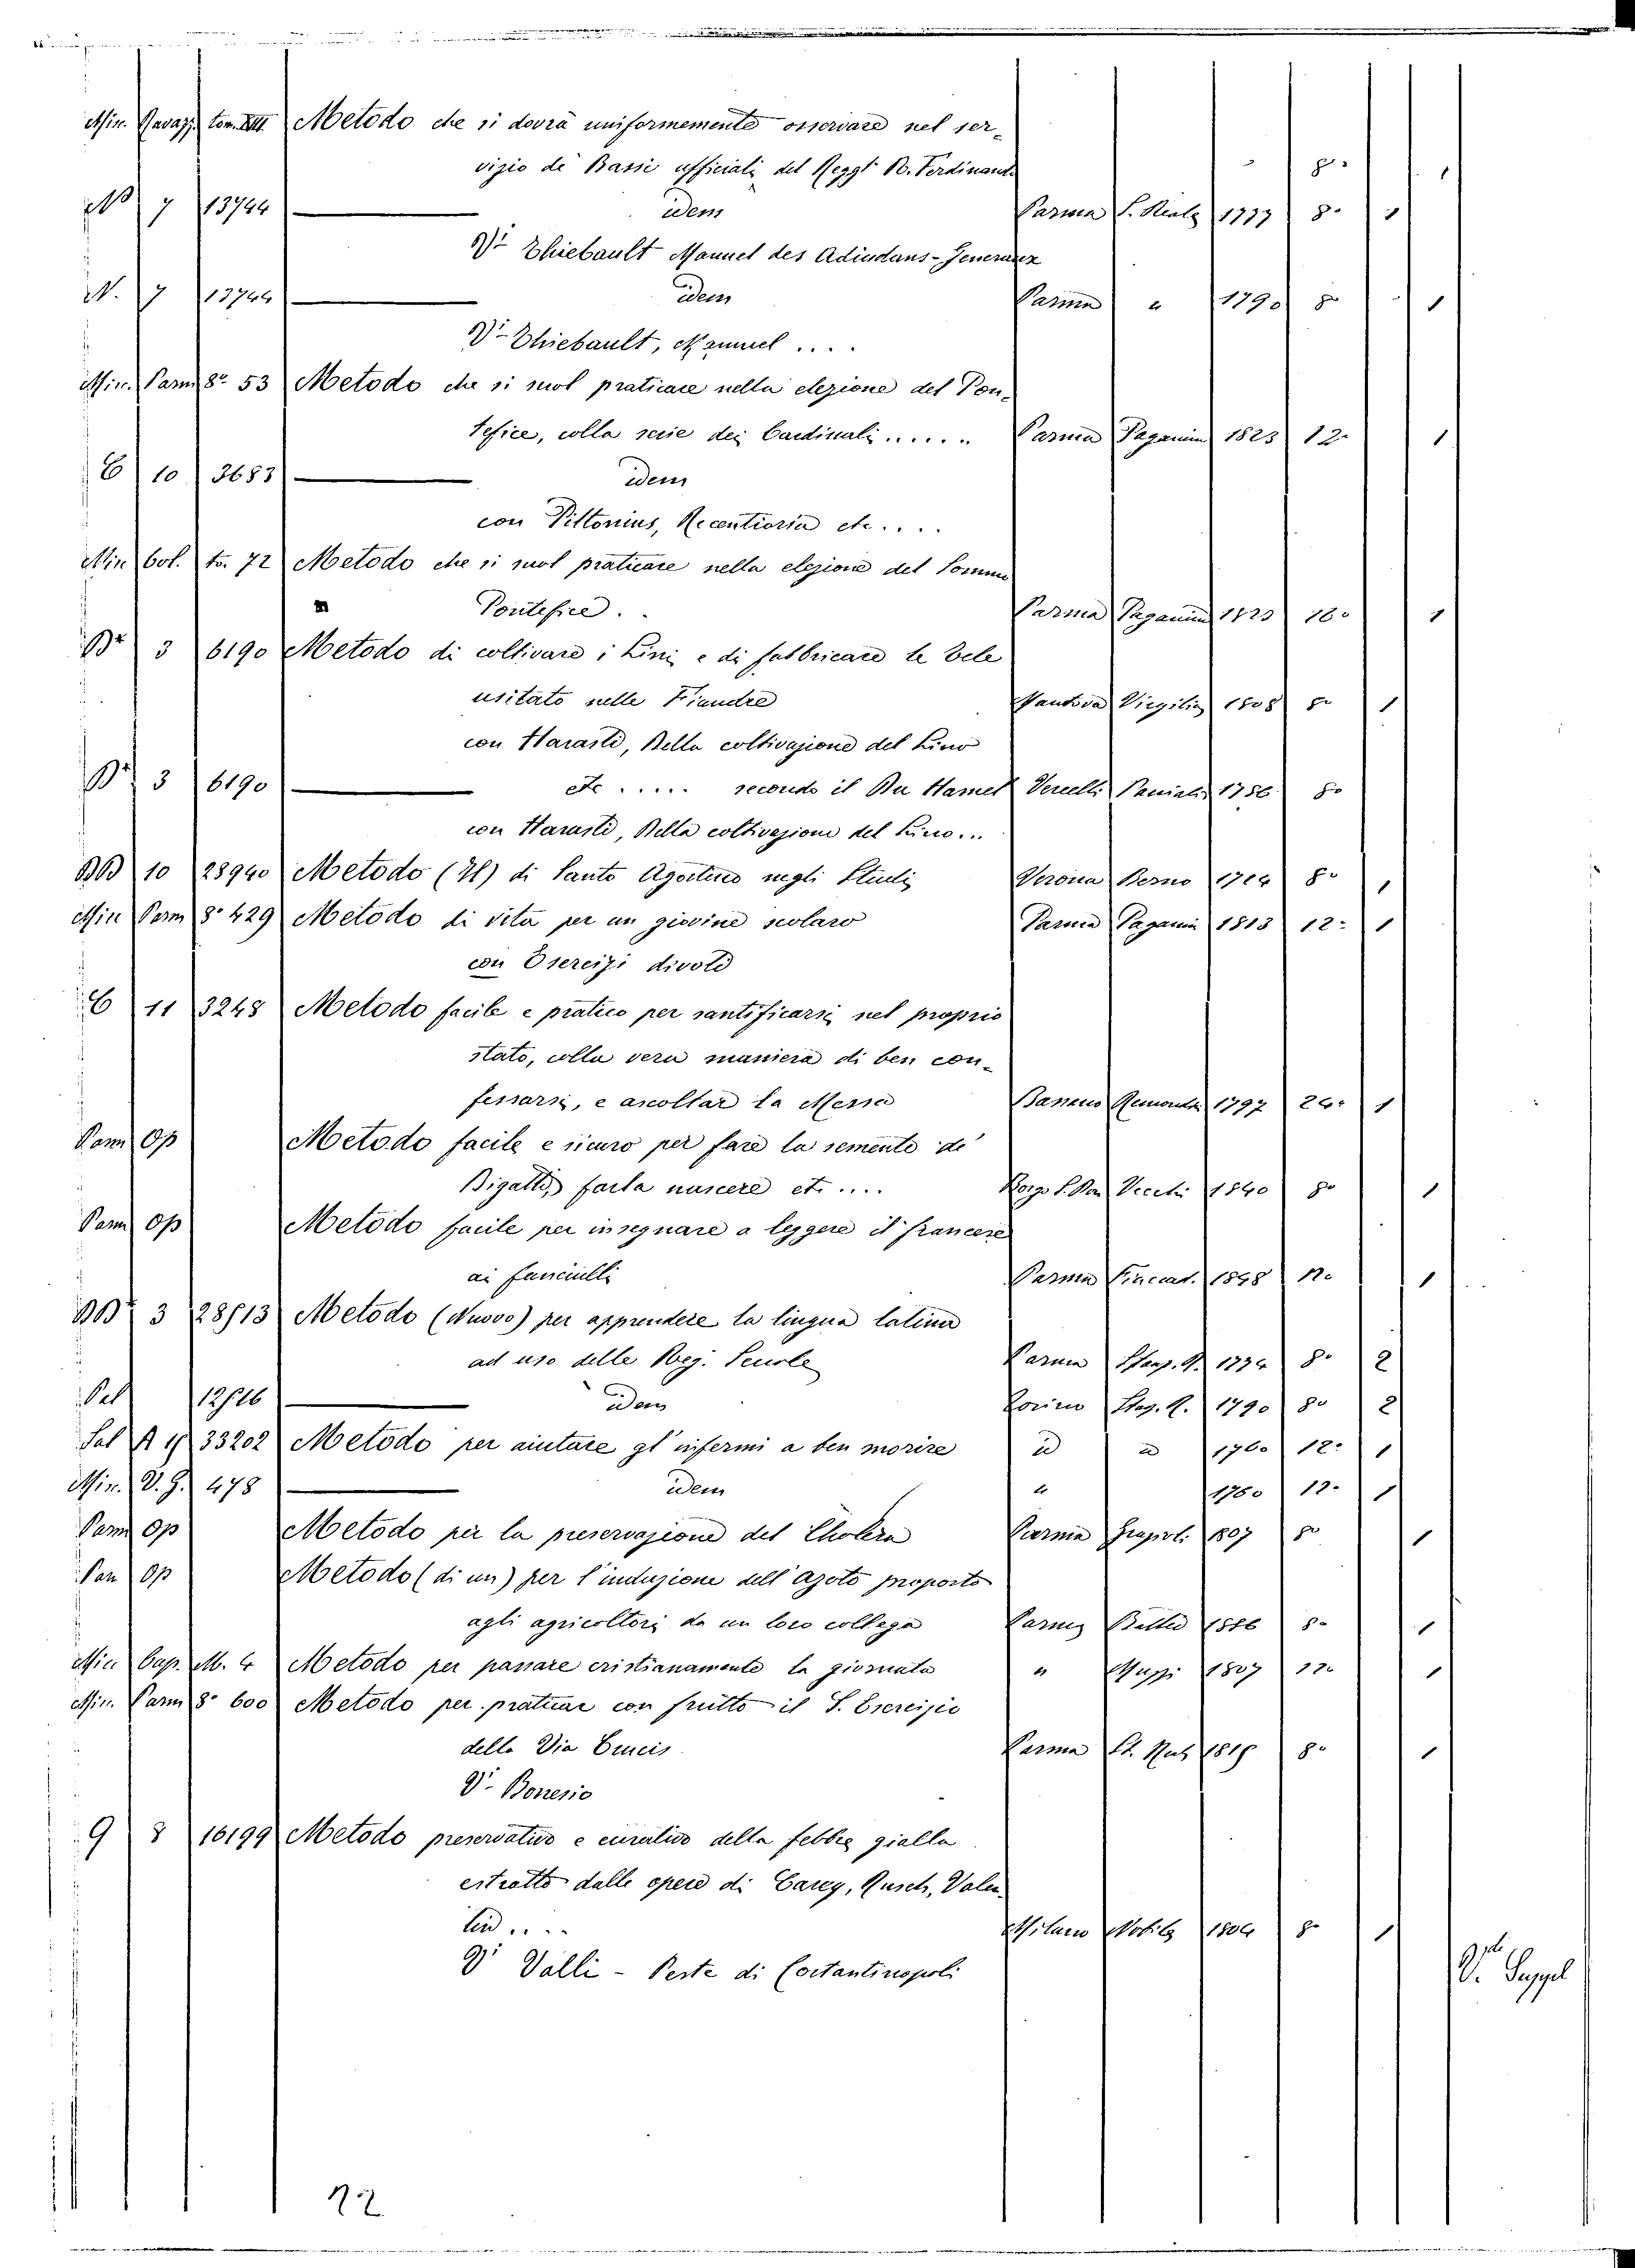 Min. Ravazz. tom. XIII Metodo che si dovrà uniformemente osservare nel ser-
vizio de' Bassi ufficiali del Regg.t R. Ferdinando 8°. 1
N° 7 13744 idem Parma S. Reale 1777 8° 1
V. Thiebault Manuel des Adiudans-Generaux
N. 7 13744 idem Parma " 1790 8° 1
V. Thiebault, Manuel ....
Min. Parm 8° 53 Metodo che si suol praticare nella elezione del Pon-
tefice, colla serie dei Cardinali ...... Parma Paganini 1823 12° 1
C 10 3683 idem
con Pittonius, Recentiora etc ....
Min Col. to. 72 Metodo che si suol praticare nella elezione del Sommo
Pontefice .. Parma Paganini 1823 16° 1
B* 3 6190 Metodo di coltivare i Lini e di fabbricare le tele
usitato nelle Fiandre Mantova Virgilio 1808 8° 1
con Harasti, Della coltivazione del Lino
B* 3 6190 etc ..... secondo il Du Hamel Vercelli Panialis 1786 8°
con Harasti, Della coltivazione del Lino...
BB 10 28940 Metodo (Il) di Santo Agostino negli Studi Verona Berno 1724 8° 1
Min Parm 8° 429 Metodo di vita per un giovine scolaro Parma Paganini 1813 12° 1
con Esercizi divoti
C 11 3248 Metodo facile e pratico per santificarsi nel proprio
stato, colla vera maniera di ben con-
fessarsi, e ascoltar la Messa Bassano Remondini 1797 24° 1
Parm Op Metodo facile e sicuro per fare la semente de'
Bigatti, farla nascere etc .... Borgo S. Don Vecchi 1840 8° 1
Parm Op Metodo facile per insegnare a leggere il francese
ai fanciulli Parma Fiaccad. 1848 12° 1
BB* 3 28513 Metodo (Nuovo) per apprendere la lingua latina
ad uso delle Reg. Scuole Parma Stamp. R. 1774 8° 2
Pal 12516 idem Torino Stap. R. 1790 8° 2
Sal A 4 33202 Metodo per aiutare gl' infermi a ben morire id id 1760 12° 1
Min. V. G. 478 idem " 1760 12° 1
Parm Op Metodo per la preservazione del Cholera Parma 8° 1
Parm Op Metodo (di un) per l'induzione dell' azoto proposto
agli agricoltori da un loro collega Parma Battei 1886 8° 1
Min Cap. M. 4 Metodo per passare cristianamente la giornata " Mussi 1807 12° 1
Min. Parm 8° 600 Metodo per praticar con frutto il S. Esercizio
della Via Crucis Parma 8° 1
V. Bonesio
9 8 16199 Metodo preservativo e curativo della febbre gialla
estratto dalle opere di Carey, Rusch, Valen-
tin .... Milano Nobile 1804 8° 1
V. Valli - Peste di Costantinopoli
V.
22